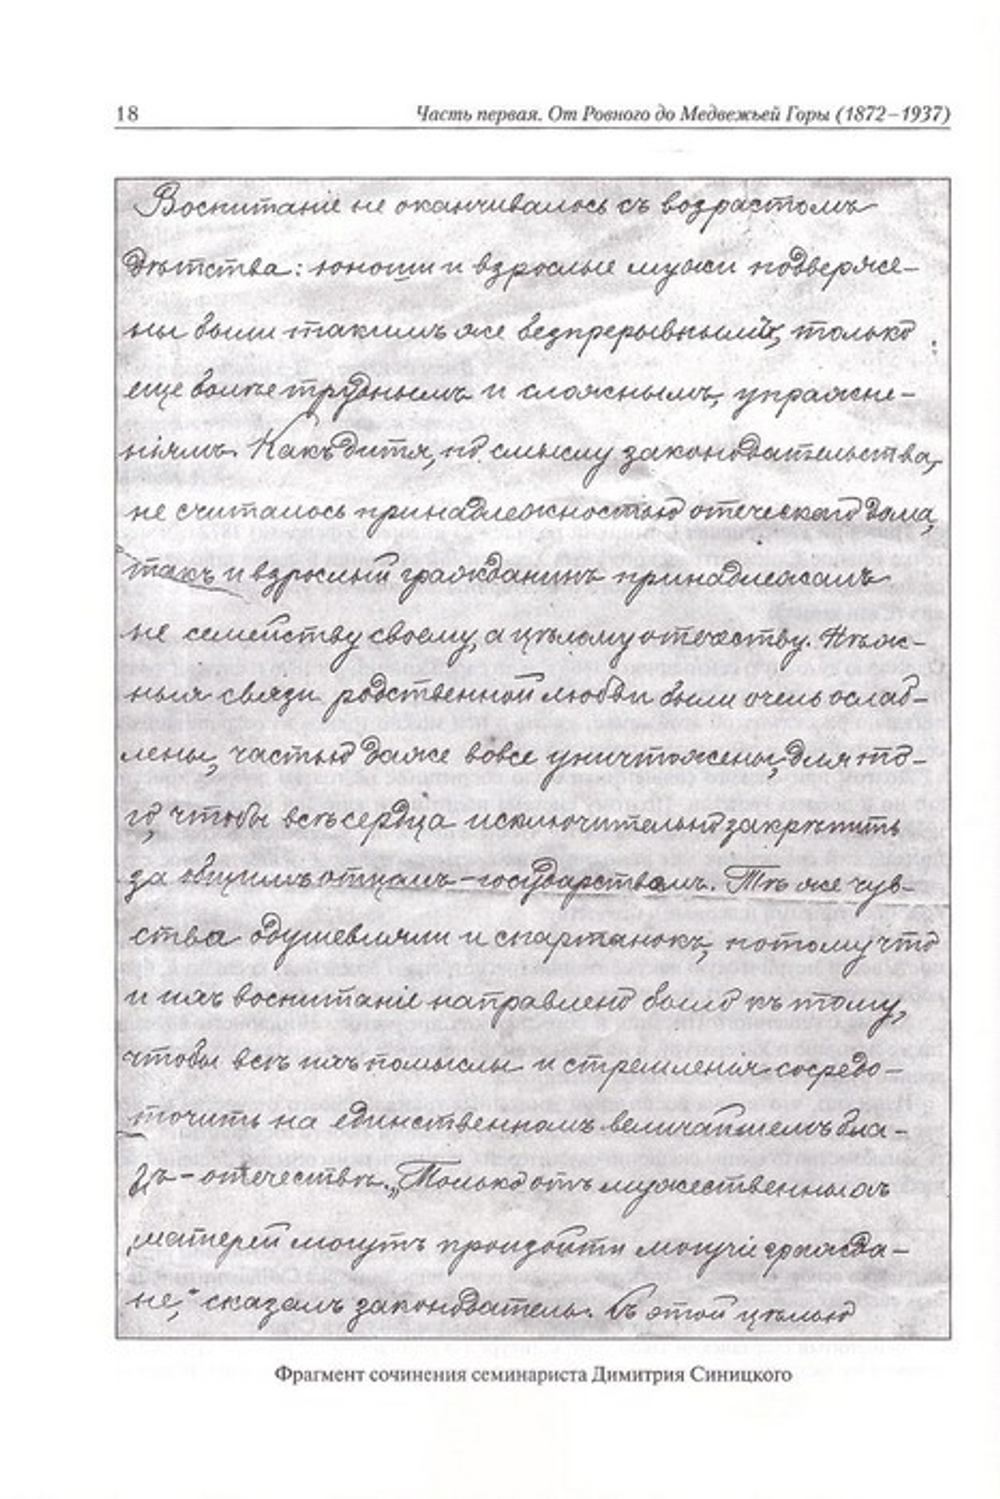 18
Часть первая. От Ровного до Медвежьей Горы (1872–1937)
Воспитаніе не оканчивалось съ возрастомъ
дѣтства: юноши и взрослые мужи подверже-
ны были такимъ же безпрерывнымъ, только
еще болѣе труднымъ и сложнымъ, упражне-
ніямъ. Какъ дитя, по смыслу законодательства,
не считалось принадлежностью отеческаго дома,
такъ и взрослый гражданинъ принадлежалъ
не семейству своему, а цѣлому отечеству. Нѣж-
ныя связи родственной любви были очень ослаб-
лены, частью даже вовсе уничтожены, для то-
го, чтобы всѣ сердца исключительно закрѣпить
за общимъ отцомъ – государствомъ. Тѣ же чув-
ства одушевляли и спартанокъ, потому что
и ихъ воспитаніе направлено было къ тому,
чтобы всѣ ихъ помыслы и стремленія сосредо-
точить на единственномъ величайшемъ бла-
гѣ – отечествѣ. „Только отъ мужественныхъ
матерей могутъ произойти могучіе гражда-
не,“ сказалъ законодатель. Съ этой цѣлью
Фрагмент сочинения семинариста Димитрия Синицкого